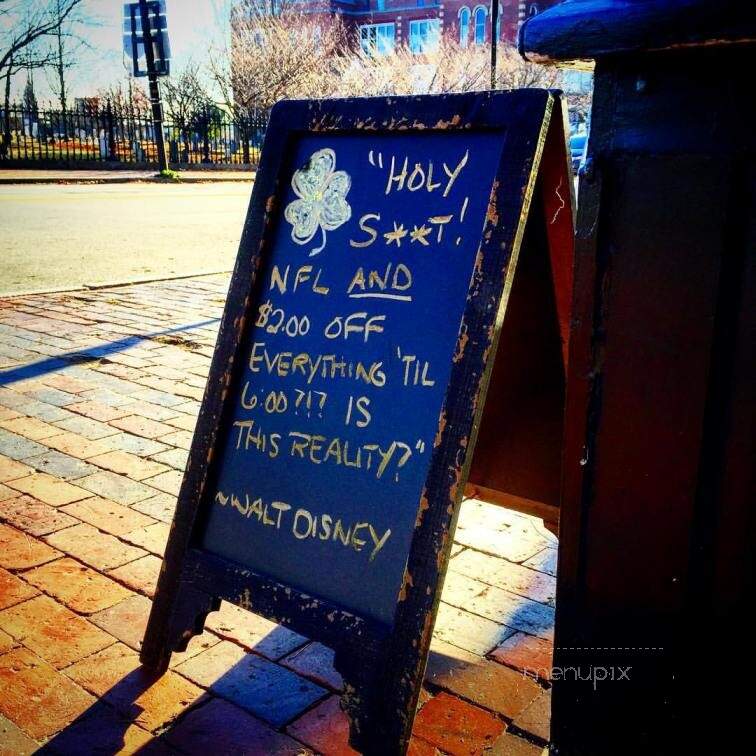 "HOLY
S**T!
NFL AND
$2.00 OFF
EVERYTHING 'TIL
6:00?!? IS
THIS REALITY?"
~WALT DISNEY
menupix